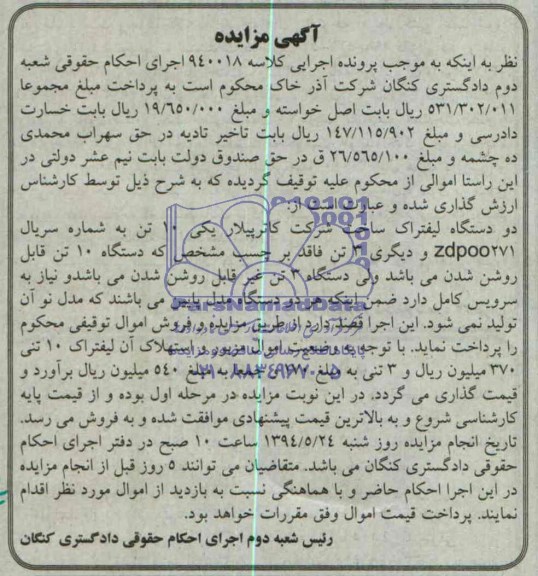 آگهی مزایده
نظر به اینکه به موجب پرونده اجرایی کلاسه ۹٤۰۰۱۸ اجرای احکام حقوقی شعبه
دوم دادگستری کنگان شرکت آذر خاک محکوم است به پرداخت مبلغ مجموعا
۵۳۱/۳۰۲/۰۱۱ ریال بابت اصل خواسته و مبلغ ۱۹/٦۵۰/۰۰۰ ریال بابت خسارت
دادرسی و مبلغ ۱٤۷/۱۱۵/۹۰۲ ریال بابت تاخیر تادیه در حق سهراب محمدی
ده چشمه و مبلغ ۲٦/۵٦۵/۱۰۰ ق در حق صندوق دولت بابت نیم عشر دولتی در
این راستا اموالی از محکوم علیه توقیف گردیده که به شرح ذیل توسط کارشناس
ارزش گذاری شده و عبارت است از:
دو دستگاه لیفتراک ساخت شرکت کاترپیلار یکی ۱۰ تن به شماره سریال
zdpoo۲۷۱ و دیگری ۳ تن فاقد بر چسب مشخص که دستگاه ۱۰ تن قابل
روشن شدن می باشد ولی دستگاه ۳ تن غیر قابل روشن شدن می باشدو نیاز به
سرویس کامل دارد ضمن اینکه هر دو دستگاه مدل پایین می باشند که مدل نو آن
تولید نمی شود. این اجرا قصد دارد از طریق مزایده و فروش اموال توقیفی محکوم
را پرداخت نماید. با توجه به وضعیت اموال مزبور و استهلاک آن لیفتراک ۱۰ تنی
۳۷۰ میلیون ریال و ۳ تنی به مبلغ جمعا به مبلغ ۵٤۰ میلیون ریال برآورد و
قیمت گذاری می گردد. در این نوبت مزایده در مرحله اول بوده و از قیمت پایه
کارشناسی شروع و به بالاترین قیمت پیشنهادی موافقت شده و به فروش می رسد.
تاریخ انجام مزایده روز شنبه ۱۳۹٤/۵/۲٤ ساعت ۱۰ صبح در دفتر اجرای احکام
حقوقی دادگستری کنگان می باشد. متقاضیان می توانند ۵ روز قبل از انجام مزایده
در این اجرا احکام حاضر و با هماهنگی نسبت به بازدید از اموال مورد نظر اقدام
نمایند. پرداخت قیمت اموال وفق مقررات خواهد بود.
رئیس شعبه دوم اجرای احکام حقوقی دادگستری کنگان
ParsNamadData